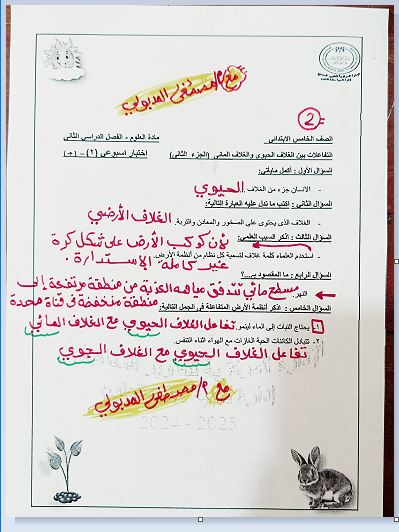 مع م/مصطفى المدبولي
2
الصف الخامس الابتدائي
مادة العلوم - الفصل الدراسي الثاني
التفاعلات بين الغلاف الحيوي والغلاف المائي (الجزء الثاني)
اختبار اسبوعي (٢)
السؤال الأول : أكمل مايأتي:
- الانسان جزء من الغلاف الحيوي
السؤال الثاني : اكتب ما تدل عليه العبارة التالية:
الغلاف الأرضي
- الغلاف الذى يحتوى على الصخور والمعادن والتربة.
السؤال الثالث : اذكر السبب العلمي:
لأن كوكب الأرض على شكل كرة
- استخدم العلماء كلمة غلاف لتسمية كل نظام من أنظمة الأرض.
غير كاملة الاستدارة.
السؤال الرابع : ما المقصود بـ....؟
النهر مسطح مائي تتدفق مياهه العذبة من منطقة مرتفعة إلى
منطقة منخفضة في قناة محددة
السؤال الخامس : اذكر أنظمة الأرض المتفاعلة في الجمل التالية:
١- يحتاج النبات إلى الماء لينمو. تفاعل الغلاف الحيوي مع الغلاف المائي
٢- تتبادل الكائنات الحية الغازات مع الهواء اثناء التنفس.
تفاعل الغلاف الحيوي مع الغلاف الجوي
مع م/مصطفى المدبولي
2024 - 2025